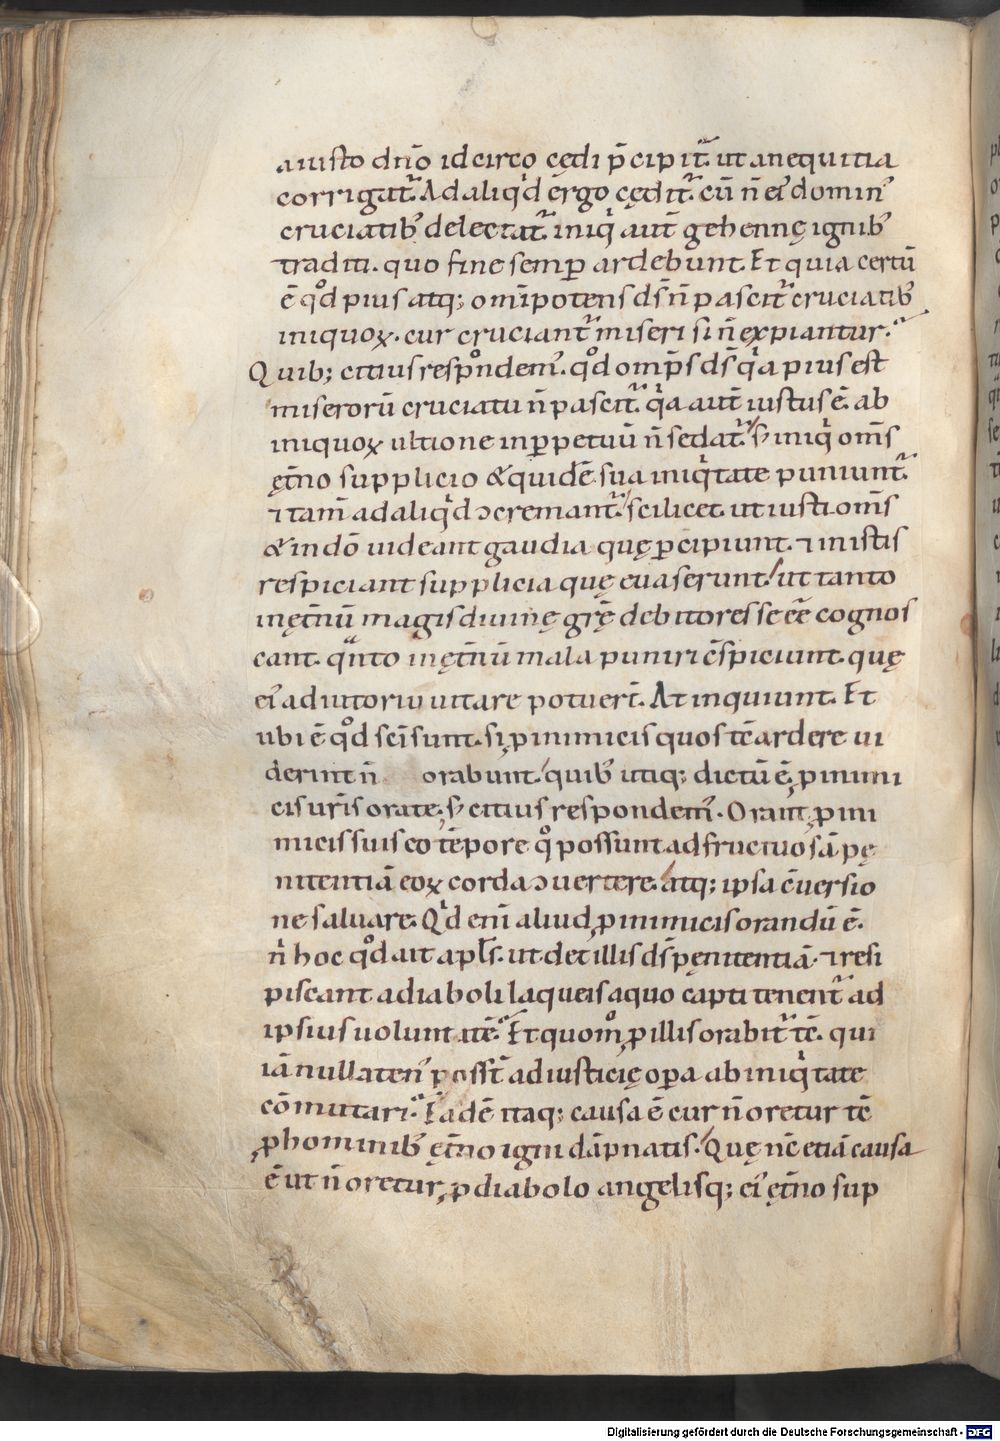 a iusto dn̄o idcirco cędi p̄cipit᷑ ut a nequitia
corrigat᷑. Ad aliqͥd ergo cędit᷑. cū n̄ ei᷒ domin᷒
cruciatib᷒ delectat᷑. iniqͥ aut̄ gehennę ignib᷒
traditi. quo fine semꝑ ardebunt. Et quia certū
ē qͦd pius atq; om̄ipotens ds̄ n̄ pascit᷑ cruciatib᷒
iniquoꝝ. cur cruciant᷑ miseri si n̄ expiantur.
Quib; citius respondem᷒. qͦd omp̄s ds̄ qͥa pius est
miserorū cruciatu n̄ pascit᷑. qͥa aut̄ iustus ē. ab
iniquoꝝ ultione inꝑpetuū n̄ sedat᷑. s; iniqͥ om̄s
ęt̄no supplicio & quidē sua iniqͥtate puniunt᷑.
⁊ tam̄ ad aliqͥd ↄcremant᷑. scilicet. ut iusti om̄s
& in dō uideant gaudia quę ꝑcipiunt. ⁊ in istis
respiciant supplicia quę euaserunt. ut tanto
inęt̄nū magis diuinę gr̄ę debitores se ēē cognos
cant. qͣnto inęt̄nū mala puniri c̄spiciunt. quę
ei᷒ adiutorio uitare potuer̄. At inquiunt. Et
ubi ē qͦd sc̄i sunt. si ꝓ inimicis quos tc̄ ardere ui
derint n̄ orabunt. quib᷒ utiq; dictū ē. ꝓ inimi
cis ur̄is orate. s; citius respondem᷒. Orant ꝓ ini
micis suis eo tēpore qͦ possunt ad fructuosā pę
nitentiā eoꝝ corda ↄuertere. atq; ipsa c̄uersio
ne saluare. Qͥd eni᷒ aliud ꝓ inimicis orandū ē.
n̄ hoc qͦd ait apl̄s. ut det illis ds̄ pęnitentiā. ⁊ resi
piscant a diaboli laqueis a quo capti tenent᷑ ad
ipsius uoluntatē. Et quom̊ ꝓ illis orabit᷑ tc̄. qui
iā nullaten᷒ poss̄t ad iusticię oꝑa ab iniqͥtate
cōmutari. Eadē itaq; causa ē cur n̄ oretur tc̄
ꝓ hominib᷒ ęt̄no igni dāpnatis. Quę nc̄ etiā causa
ē ut n̄ oretur ꝓ diabolo angelisq; ei᷒ ęt̄no sup
Digitalisierung gefördert durch die Deutsche Forschungsgemeinschaft - DFG